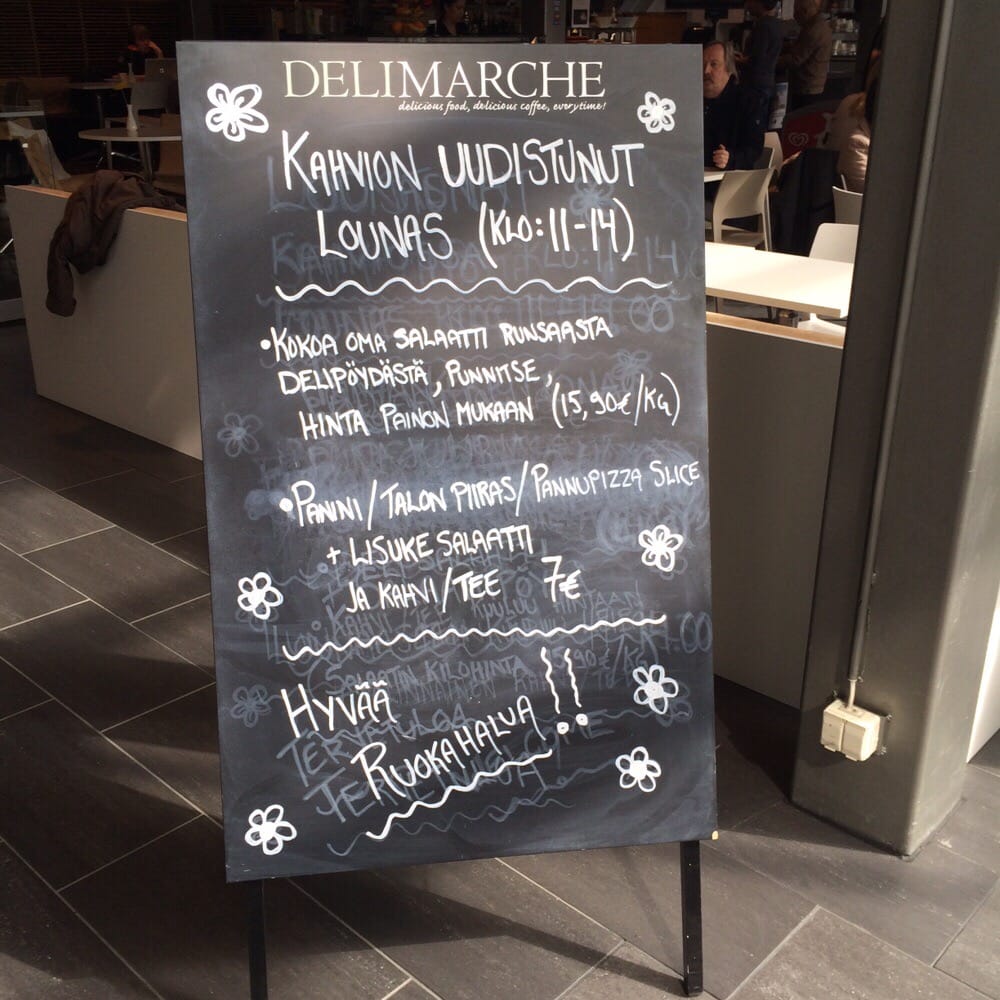 DELIMARCHE
delicious food, delicious coffee, everytime!
KAHVION UUDISTUNUT
LOUNAS (KLO: 11-14)
• KOKOA OMA SALAATTI RUNSAASTA
DELIPÖYDÄSTÄ, PUNNITSE,
HINTA PAINON MUKAAN (15,90€/KG)
• PANINI/TALON PIIRAS/PANNUPIZZA SLICE
+ LISUKE SALAATTI
JA KAHVI/TEE 7€
HYVÄÄ
RUOKAHALUA!!